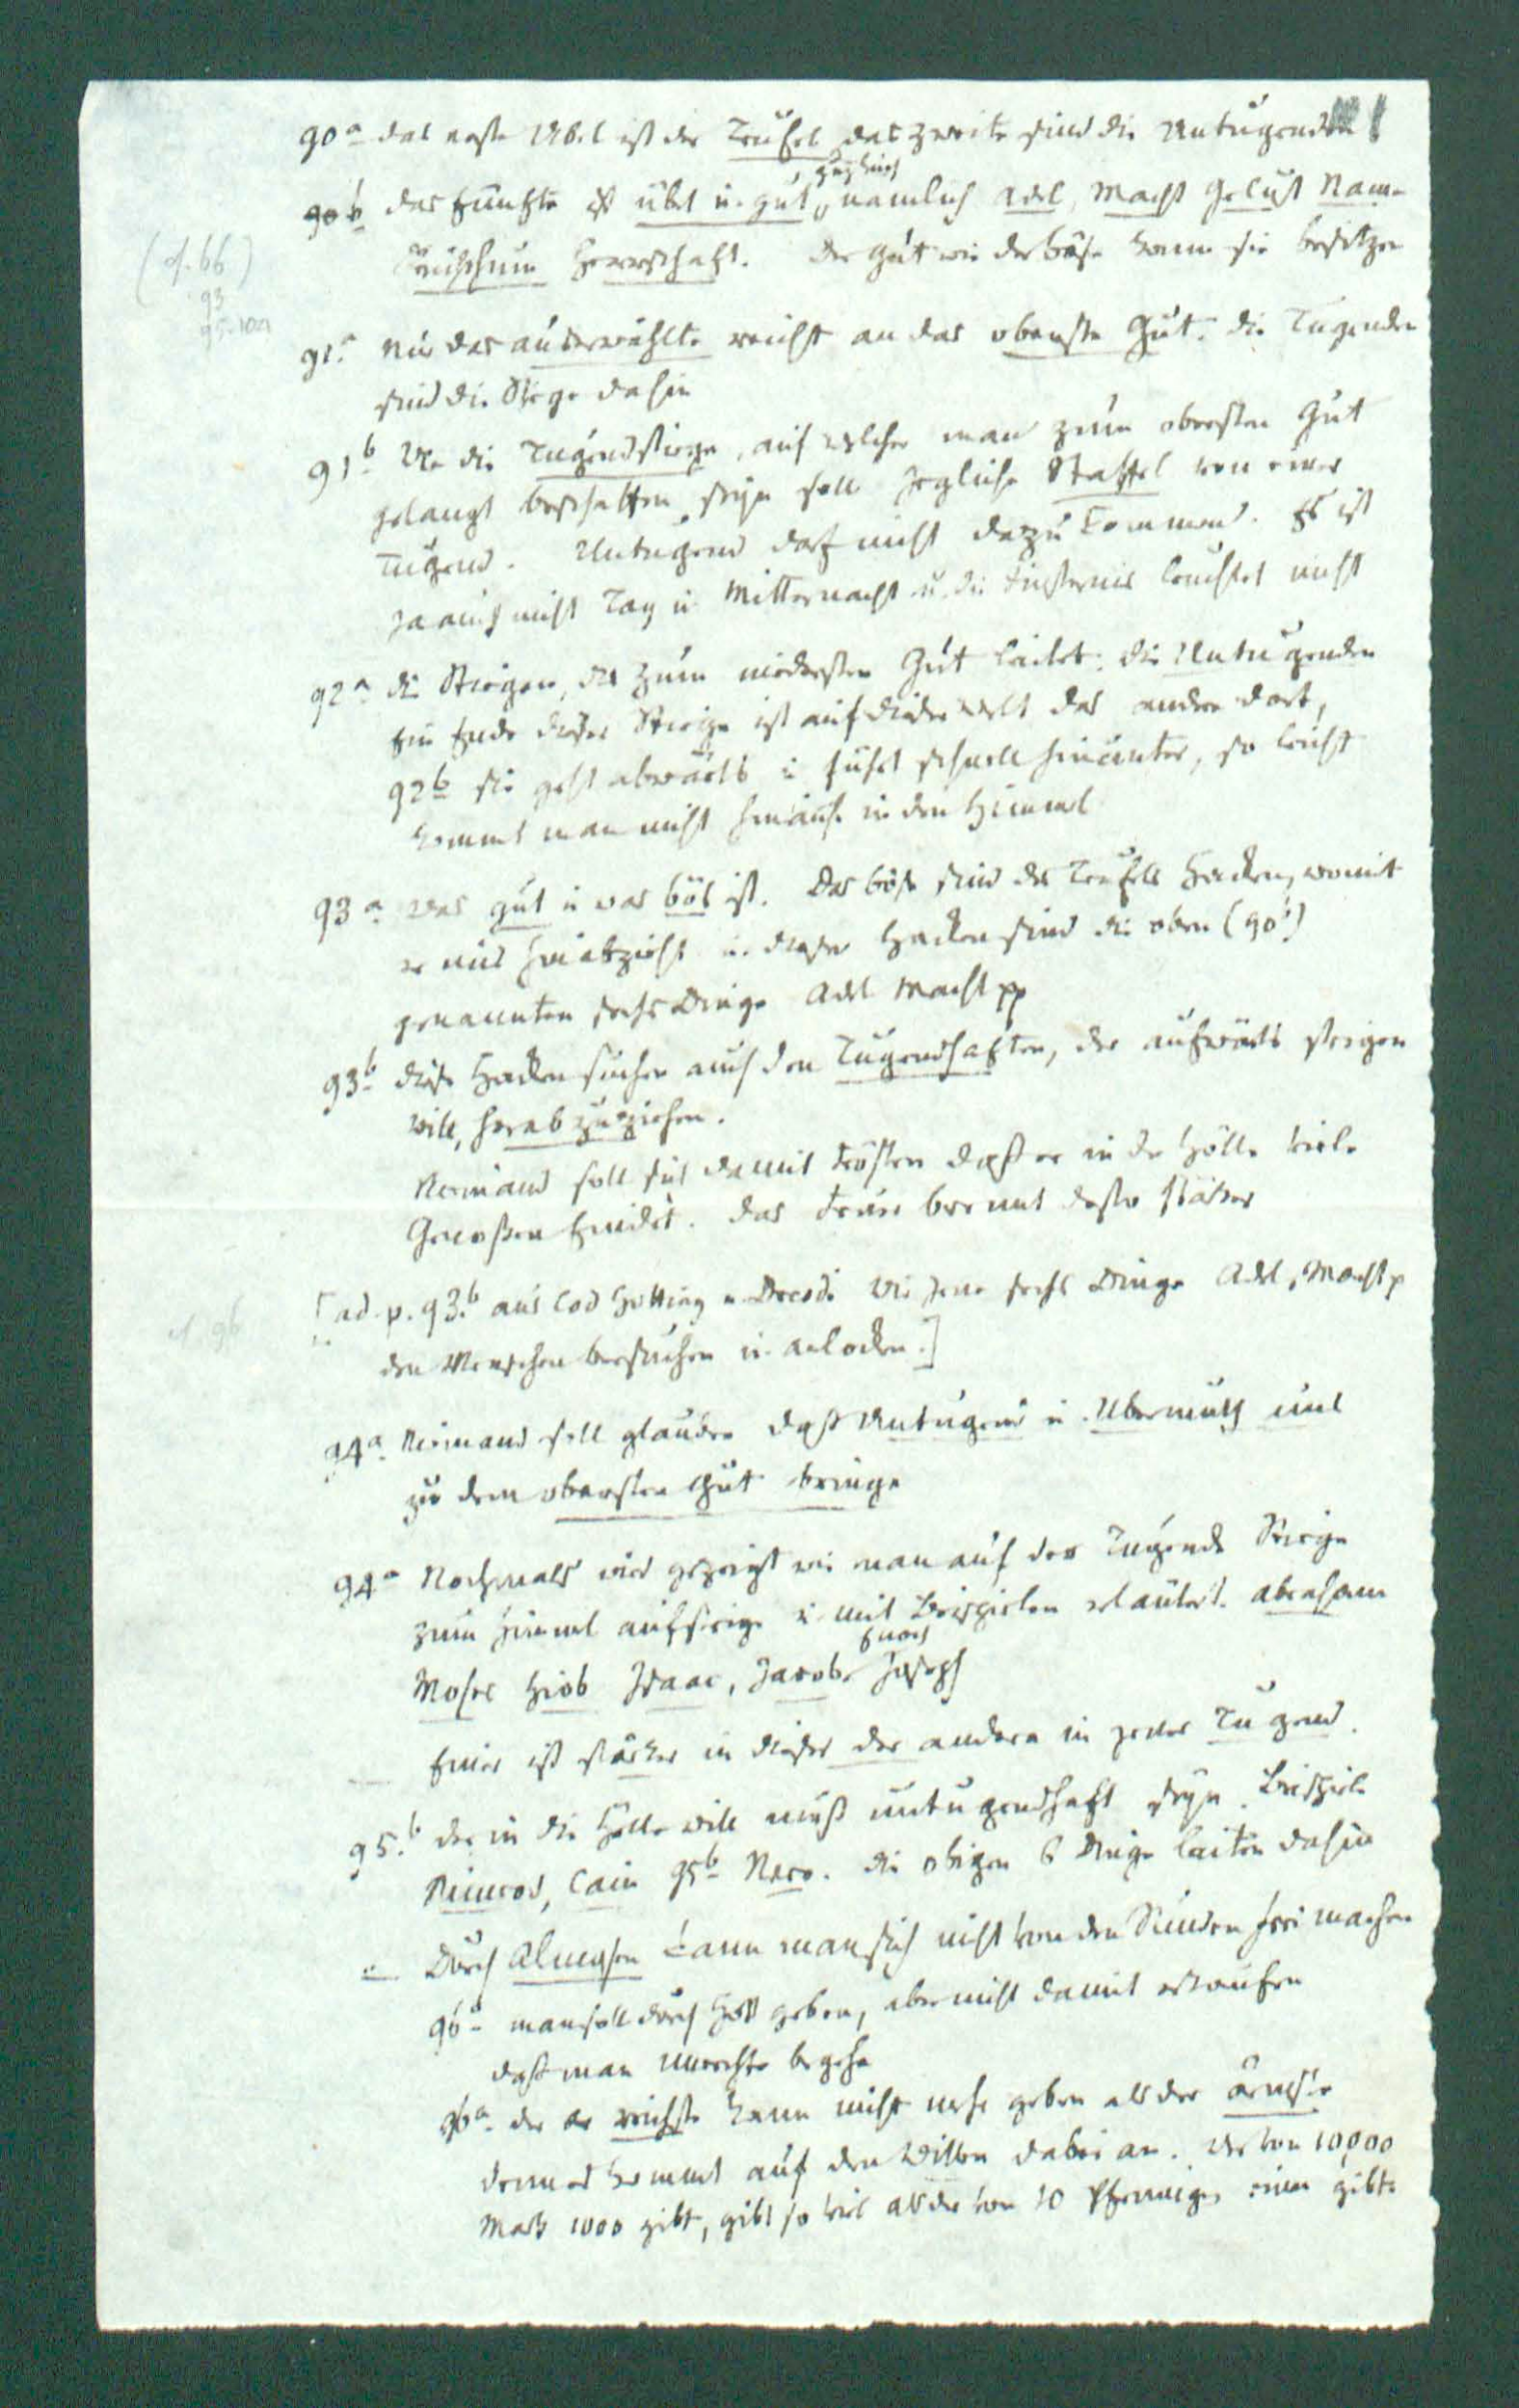 90a das erste Übel ist der Teufel das zweite sind die Untugenden
zugleich
90b das fünfte ist übel u. gut, nämlich Adel, Macht Gelust Name
Reichthum Herrschaft. Der gute wie der böse kann sie besitzen
(cf. 66)
93
91a Nur das auserwählte reicht an das oberste Gut. die Tugenden
sind die Stiege dahin
91b Wie die Tugendstiege, auf welcher man zum obersten Gut
gelangt beschaffen seyn soll jegliche Staffel von einer
Tugend. Untugend darf nicht dazu kommen. Es ist
ja auch nicht Tag u Mitternacht u. die Finsternis leuchtet nicht
92a die Stiegen, die zum niedersten Gut leitet: die Untugenden
Ein Ende dieser Stiege ist auf dieser Welt das andere dort,
92b sie geht abwärts u führt schnell hinunter, so leicht
kommt man nicht hinauf in den Himmel
93a was gut u was bös ist. Das böse sind des Teufels Hacken, womit
er uns hinabzieht u. dieser Hacken sind die oben (90b)
genannten sechs Dinge Adel Macht pp
93b diese Hacken suchen auch den Tugendhaften, der aufwärts steigen
will, herabzuziehen.
Niemand soll sich damit trösten daß er in der Hölle viele
Genoßen findet. das Feuer brennt desto stärker
[ad. p. 93.b aus Cod Gotting u Dresd. wie jene sechs Dinge Adel, Macht p
den Menschen versuchen u. anlocken.]
cf 96
94a Niemand soll glauben daß Untugend u. Übermuth uns
zu dem obersten Gut bringe
94a Nochmals wird gezeigt wie man auf der Tugende Stiege
zum Himmel aufsteige u. mit Beispielen erläutert. Abraham
Enoch
Moses Hiob Isaac, Jacob Joseph
— Einer ist stärker in dieser der andere in jener Tugend.
95.b der in die Hölle will muß untugendhaft seyn. Beispiele
Nimrod, Cain 95b Nero. die obigen 6 Dinge leiten dahin
— Durch Almosen kann man sich nicht von den Sünden frei machen
96a man soll durch Gott geben, aber nicht damit erkaufen
daß man Unrechte begehe
96a der reichste kann nicht mehr geben als der ärmste
denn es kommt auf den Willen dabei an. Wer von 10,000
Mark 1000 gibt, gibt so viel als der von 10 Pfennigen einen gibt.